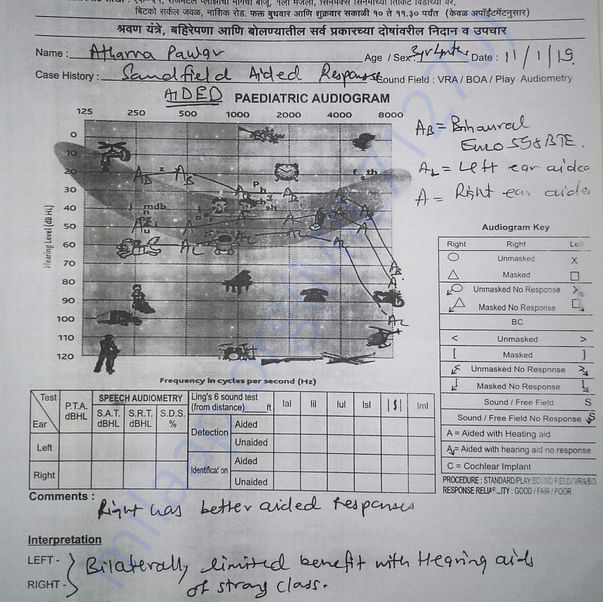 बिटको सर्कल जवळ, नाशिक रोड. फक्त बुधवार आणि शुक्रवार सकाळी १० ते ११.३० पर्यंत (केवळ अपॉईंटमेंटनुसार)
श्रवण यंत्रे, बहिरेपणा आणि बोलण्यातील सर्व प्रकारच्या दोषांवरील निदान व उपचार
Name : Atharva Pawar Age / Sex: 3yr 4mths Date : 11/1/19
Case History : Soundfield Aided Response Sound Field : VRA / BOA / Play Audiometry
AIDED PAEDIATRIC AUDIOGRAM
125 250 500 1000 2000 4000 8000
Hearing Level (dB HL)
0
10
20
30
40
50
60
70
80
90
100
110
120
Frequency in cycles per second (Hz)
AB = Binaural
Euro 558 BTE.
AL = Left ear aided
A = Right ear aided
Audiogram Key
Right Right Le
Unmasked X
Masked
Unmasked No Response
Masked No Response
BC
< Unmasked >
[ Masked ]
Unmasked No Response
Masked No Response
Sound / Free Field S
Sound / Free Field No Response S
A = Aided with Heating aid
A = Aided with hearing aid no response
C = Cochlear Implant
PROCEDURE : STANDARD/PLAY/SOUND FIELD/VRA/BO
RESPONSE RELIABILITY : GOOD / FAIR / POOR
Test P.T.A. dBHL SPEECH AUDIOMETRY Ling's 6 sound test (from distance) ft |a| |i| |u| |s| |ʃ| |m|
Ear S.A.T. dBHL S.R.T. dBHL S.D.S. %
Left Detection Aided
Unaided
Right Identification Aided
Unaided
Comments : Right has better aided responses
Interpretation
LEFT - Bilaterally limited benefit with Hearing aids
RIGHT - of strong class.